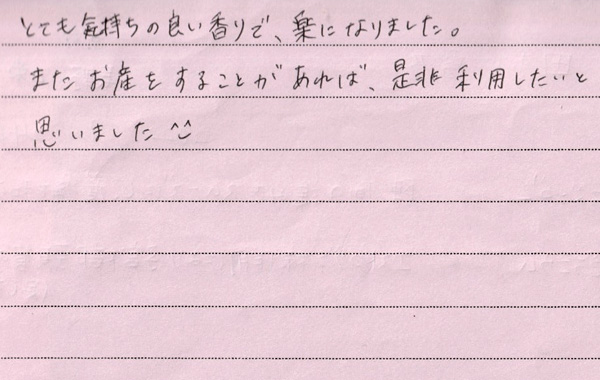 とても気持ちの良い香りで、楽になりました。
またお産をすることがあれば、是非利用したいと
思いました ^^